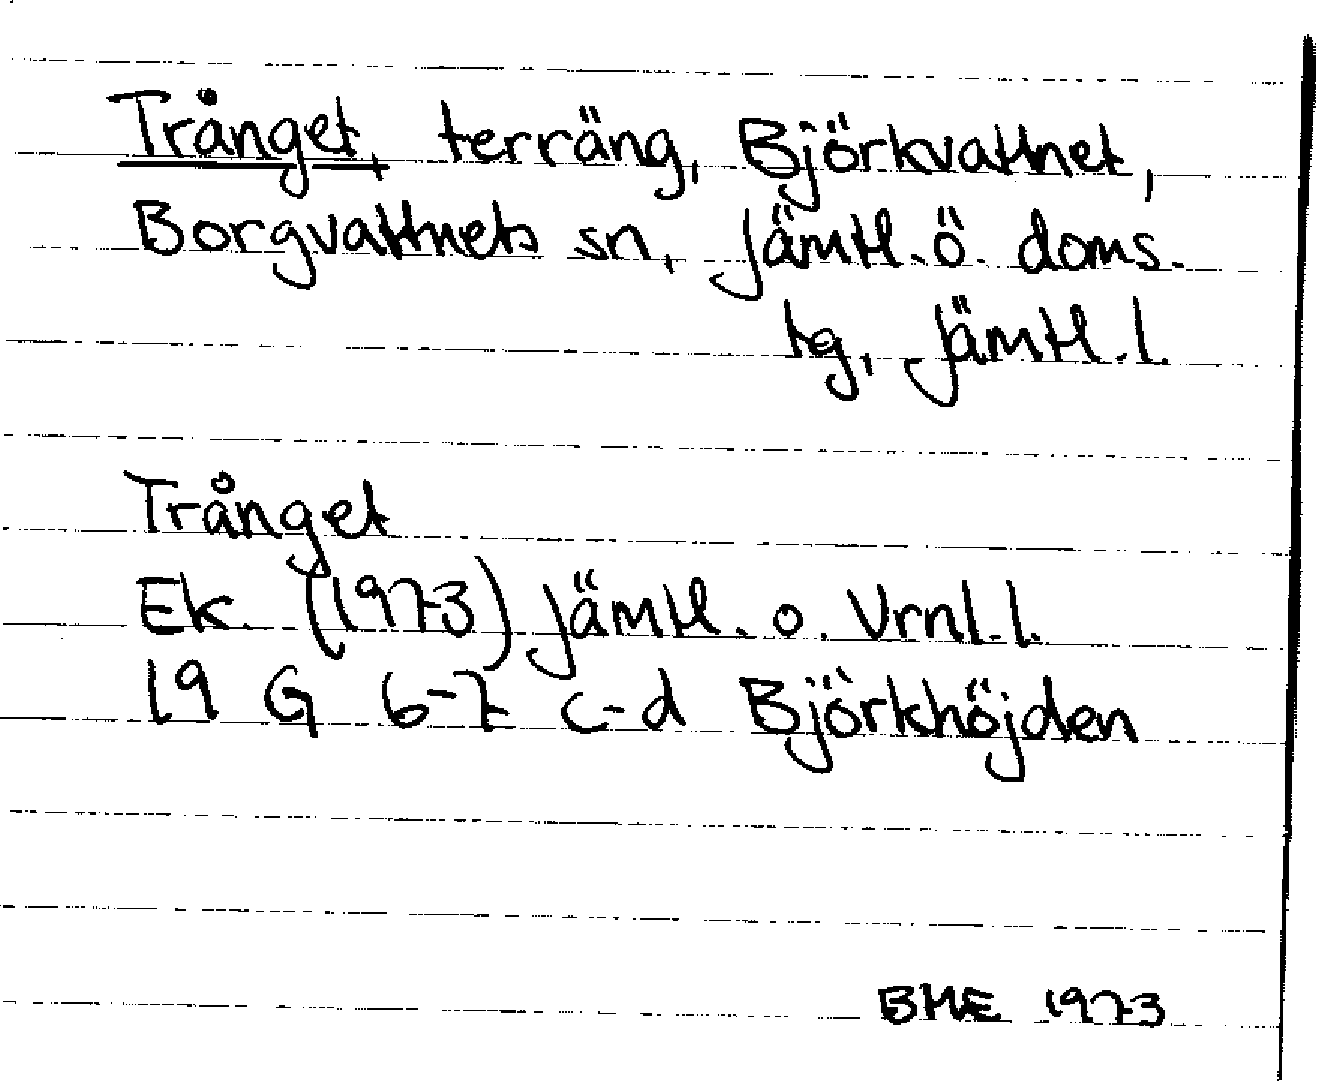 Trånget, terräng, Björkvattnet,
Borgvattnets sn, Jämtl. ö. doms.
tg, Jämtl. l.
Trånget
Ek. (1973) Jämtl. o. Vrnl. l.
19 G 6-7 c-d Björkhöjden
BME 1973